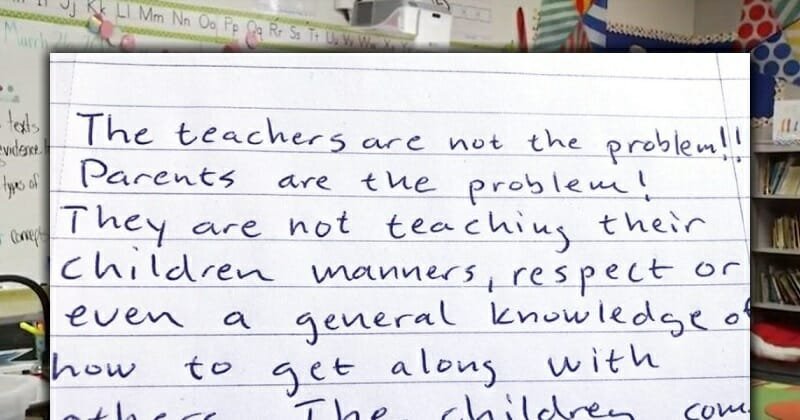 Jj Kk Ll Mm Nn Oo Pp Qq Rr Ss Tt Uu Vv Ww
March
texts
evidence
types of
The teachers are not the problem!!
Parents are the problem!
They are not teaching their
children manners, respect or
even a general knowledge of
how to get along with
others. The children com